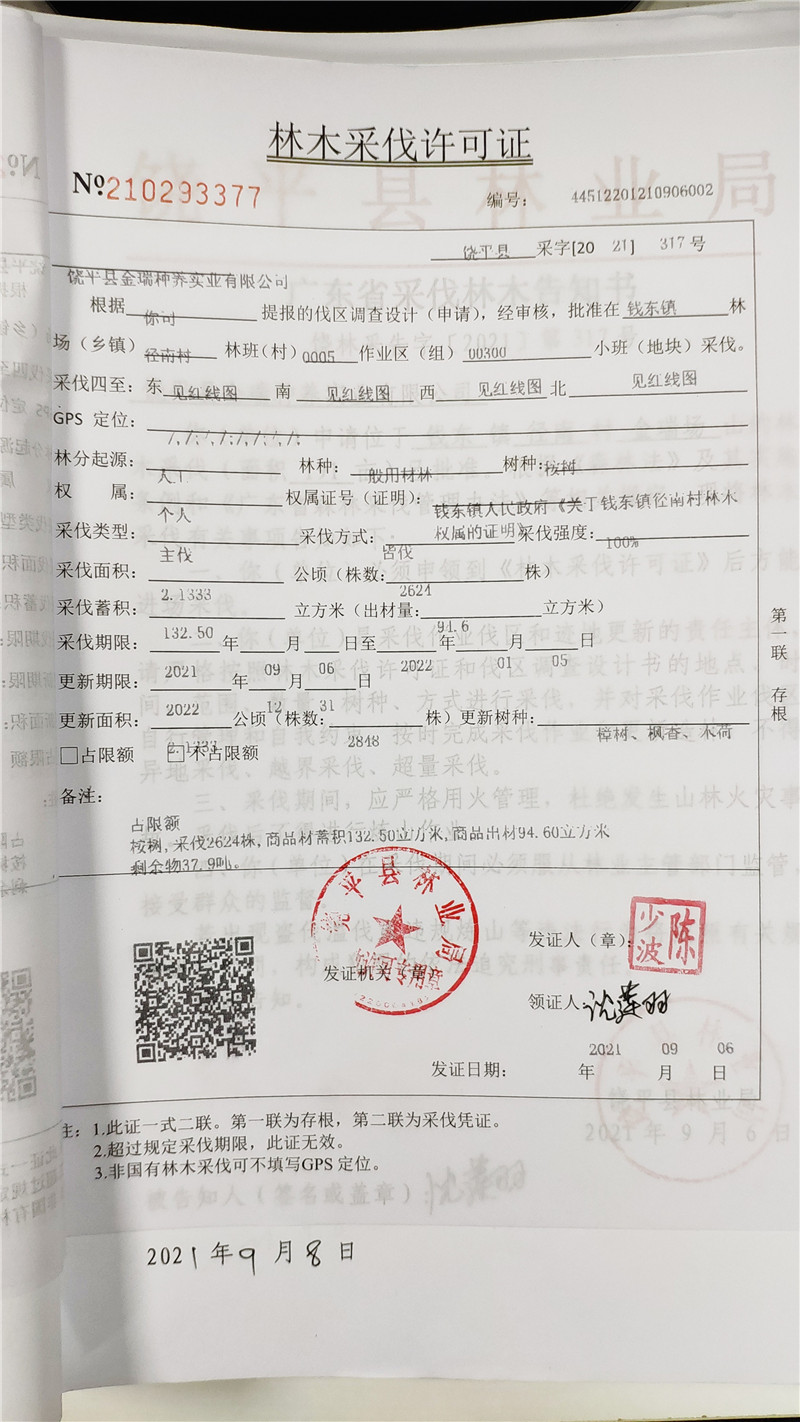 林木采伐许可证
№210293377
编号： 44512201210906002
饶平县 采字[20 21] 317 号
饶平县金瑞种养实业有限公司
根据 你司 提报的伐区调查设计（申请），经审核，批准在 钱东镇 林
场（乡镇） 径南村 林班（村） 0005 作业区（组） 00300 小班（地块）采伐。
采伐四至：东 见红线图 南 见红线图 西 见红线图 北 见红线图
GPS 定位：
/,/;/,/;/,/;/,/;
林分起源： 人工 林种： 一般用材林 树种：桉树
权 属： 个人 权属证号（证明）： 钱东镇人民政府《关于钱东镇径南村林木
权属的证明》
采伐类型： 主伐 采伐方式： 皆伐 采伐强度： 100%
采伐面积： 2.1333 公顷（株数： 2624 株）
采伐蓄积： 132.50 立方米（出材量： 94.6 立方米）
采伐期限： 2021 年 09 月 06 日至 2022 年 01 月 05 日
更新期限： 2022 年 12 月 31 日
更新面积： 2.1333 公顷（株数： 2848 株）更新树种： 樟树、枫香、木荷
□占限额 □不占限额
备注：
占限额
桉树,采伐2624株,商品材蓄积132.50立方米,商品出材94.60立方米
剩余物37.9吨。
饶平县林业局
发证机关（章）
发证人（章）：
陈少波
领证人：
发证日期： 2021 年 09 月 06 日
第一联 存根
注：1.此证一式二联。第一联为存根，第二联为采伐凭证。
2.超过规定采伐期限，此证无效。
3.非国有林木采伐可不填写GPS 定位。
2021年9月8日